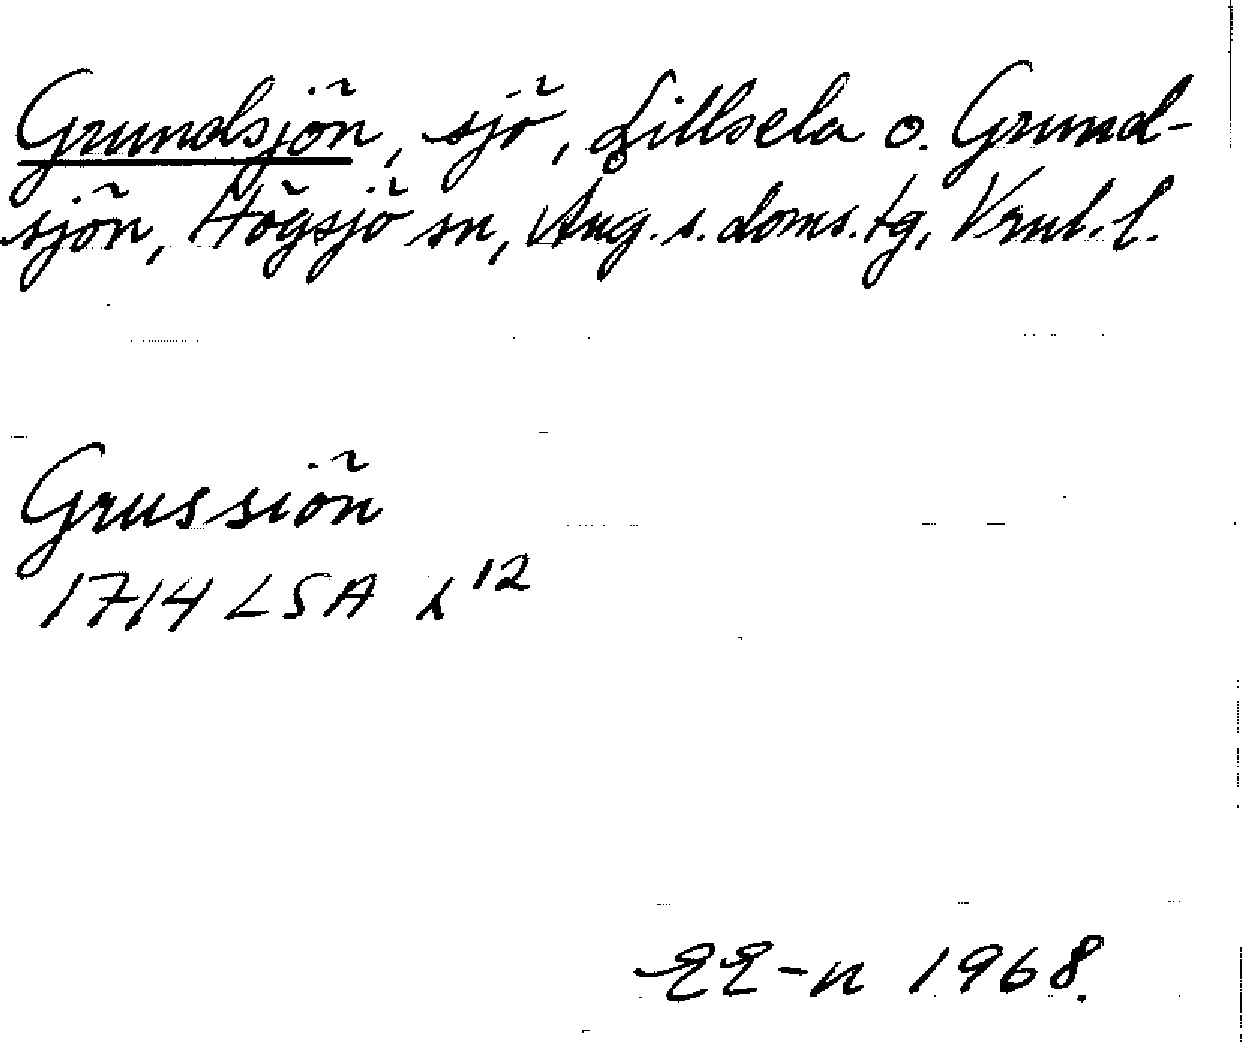 Grundsjön, sjö, Lillsela o. Grund-
sjön, Högsjö sn, Ång. s. doms. tg, Vrnl. l.
Grussiön
1714 LSA 12
EE-n 1968.